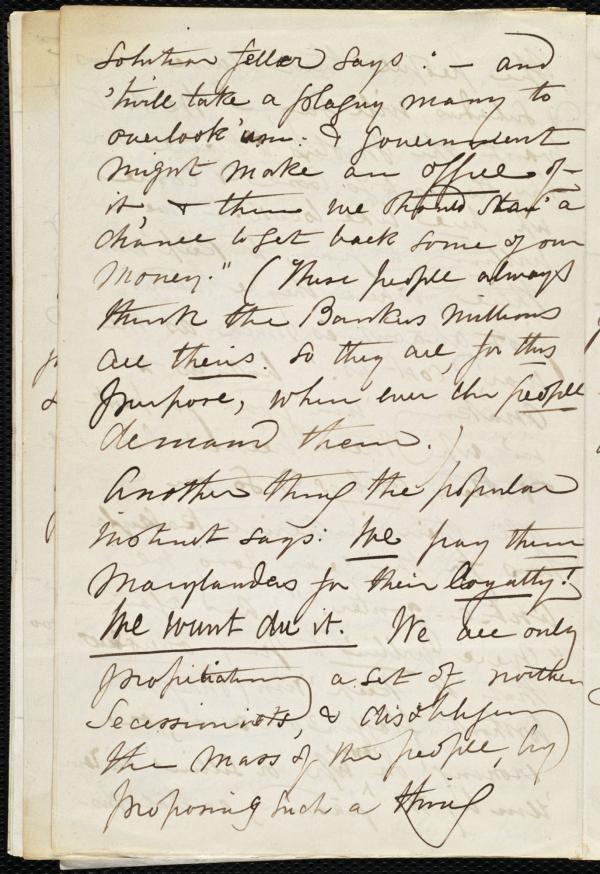 solution feller says: — and
'twill take a plaguy many to
overlook 'um: & government
might make an office of
it, & then we should stan' a
chance to get back some of our
money." (These people always
think the Bankers millions
are theirs. So they are, for this
purpose, when ever the people
demand them.)
Another thing the popular
instinct says: We pay them
Marylanders for their loyalty!
We wunt du it. We are only
propitiating a set of northern
Secessionists, & disobliging
the mass of the people, by
proposing such a thing